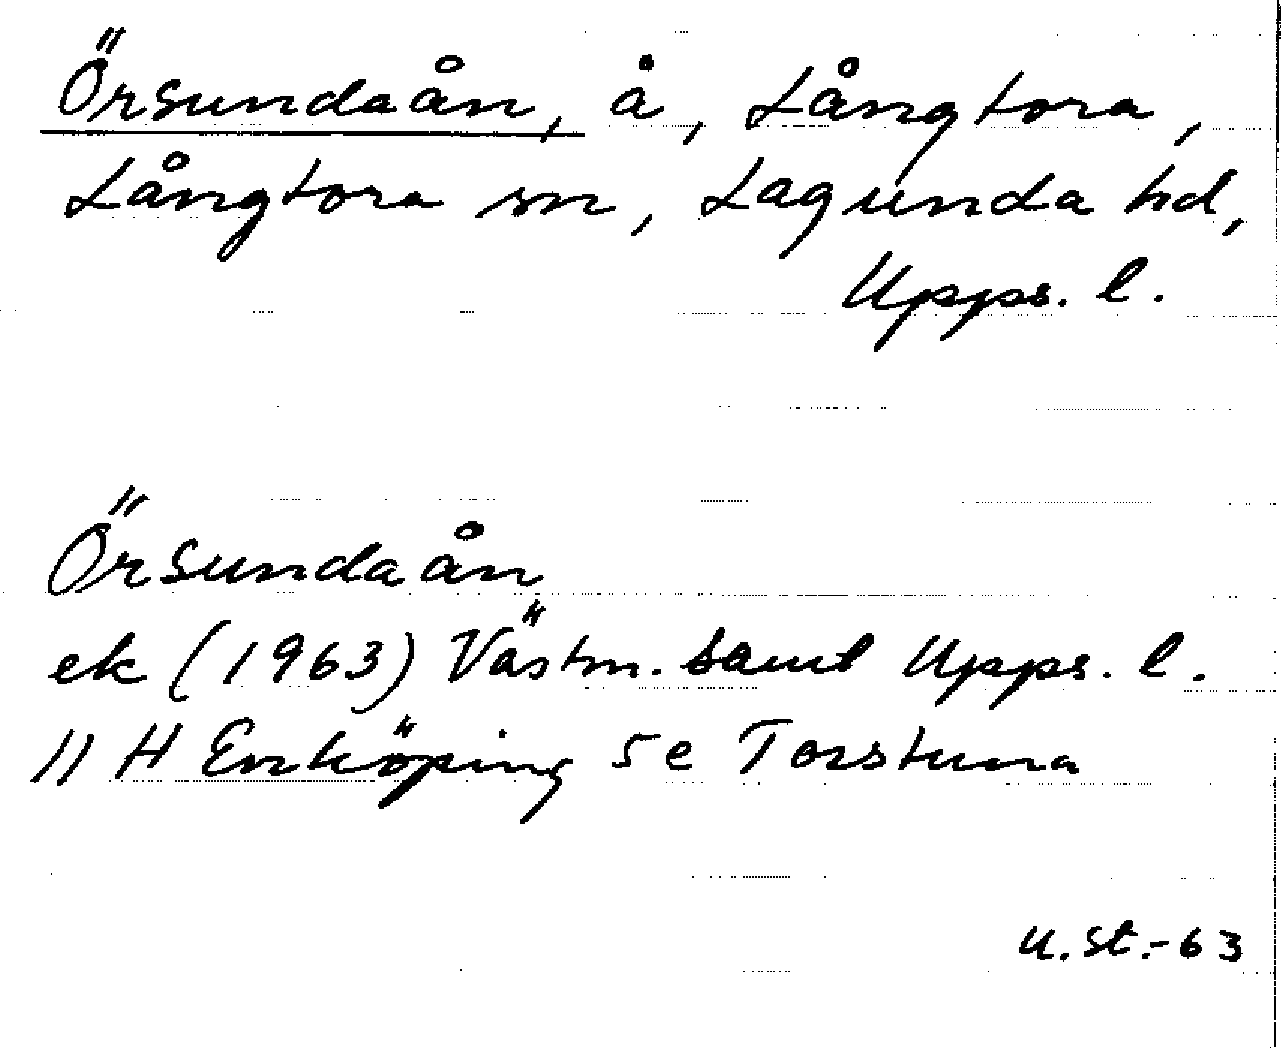 Örsundaån, å, Långtora,
Långtora sn, Lagunda hd,
Upps. l.
Örsundaån
ek (1963) Västm. samt Upps. l.
11 H Enköping 5e Torstuna
U.St.-63